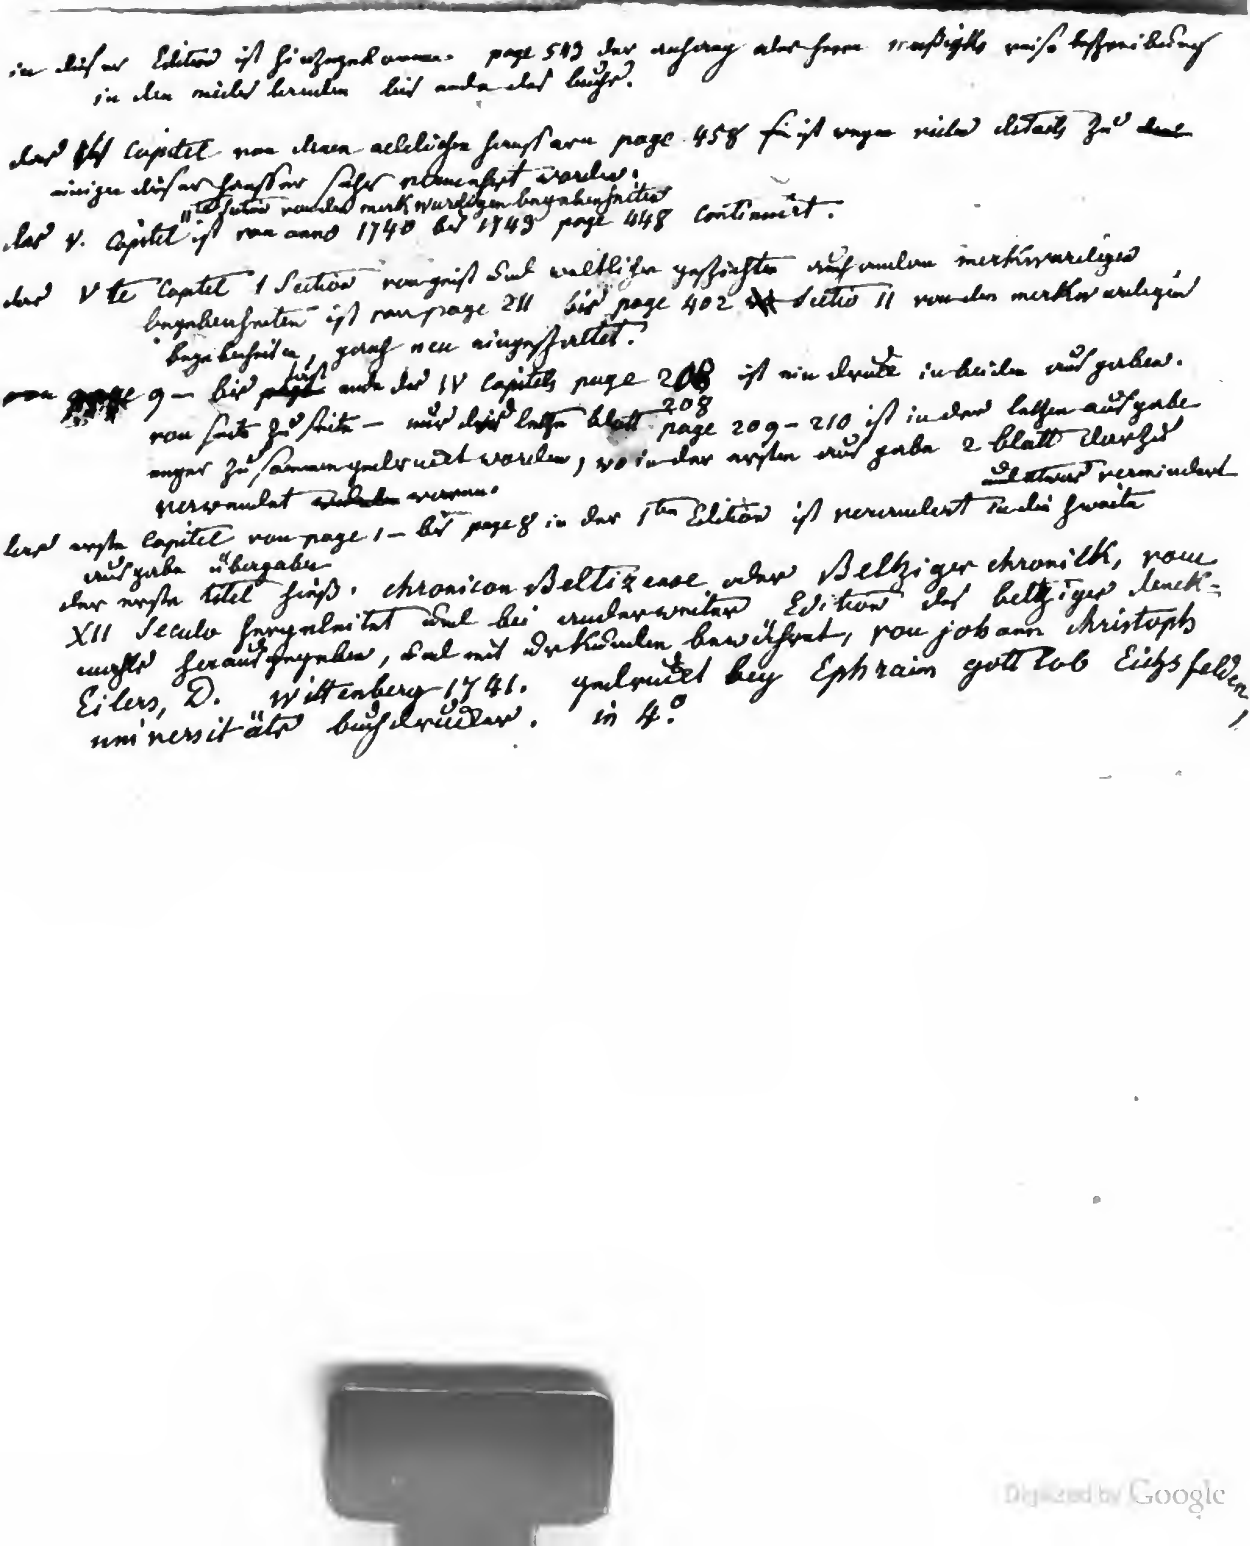 in dieser Edition ist hinzugekommen. page 543 der anhang oder herrn reise beschreibung
in den nieder landen bis ende des buchs.
das Capitel von denen adelichen haussern page 458 ist wegen vieler details zu
einigen dieser hausser sehr vermehret worden.
II te Section von den merkwurdigen begebenheiten
das V. Capitel ist von anno 1740 bis 1749 page 448 Continuirt.
das V te Capitel 1 Section von geist und weltlichen geschichten auch andern merkwurdigen
begebenheiten ist von page 211 bis page 402 Sectio II von den merkwurdigen
begebenheiten, gantz neu eingeschaltet.
von page 9 – bis fast ende des IV Capitels page 208 ist ein druck in beiden ausgaben.
208
von seite zu seite – nur das letzte blatt page 209 – 210 ist in der letzten ausgabe
enger zusammengedruckt worden, wo in der ersten ausgabe 2 blatt darzu
verwendet waren.
und etwas vermindert
das erste Capitel von page 1 – bis page 8 in der 1ten Edition ist verandert in die zweite
ausgabe übergaben
der erste titel hieß. Chronicon Beltizense oder Beltziger chronick, vom
XII Seculo hergeleitet und bei anderweiter Edition des beltziger denck-
mahls herausgegeben, und mit urkunden bewähret, von johann christoph
Eilers, D. Wittenberg 1741. gedruckt bey Ephraim gottlob Eichsfelden,
universitäts buchdrucker. in 4º
Digitized by Google